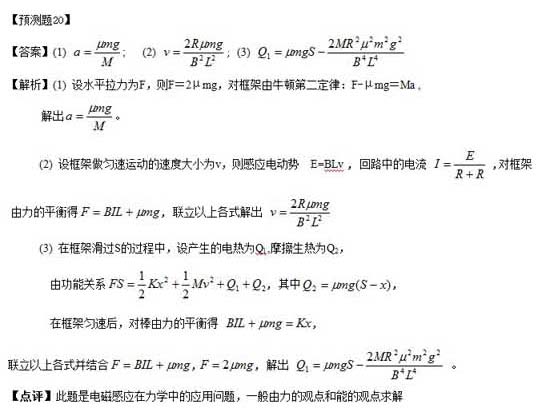 【预测题20】
【答案】(1) a=μmg/M； (2) v=2Rμmg/B²L²；(3) Q₁=μmgS-2MR²μ²m²g²/B⁴L⁴
【解析】(1) 设水平拉力为F，则F＝2μmg，对框架由牛顿第二定律：F-μmg＝Ma。
解出a=μmg/M。
(2) 设框架做匀速运动的速度大小为v，则感应电动势 E=BLv，回路中的电流 I=E/(R+R)，对框架
由力的平衡得F=BIL+μmg，联立以上各式解出 v=2Rμmg/B²L²
(3) 在框架滑过S的过程中，设产生的电热为Q₁,摩擦生热为Q₂，
由功能关系FS=1/2Kx²+1/2Mv²+Q₁+Q₂，其中Q₂=μmg(S-x)，
在框架匀速后，对棒由力的平衡得 BIL+μmg=Kx，
联立以上各式并结合F=BIL+μmg，F=2μmg，解出 Q₁=μmgS-2MR²μ²m²g²/B⁴L⁴ 。
【点评】此题是电磁感应在力学中的应用问题，一般由力的观点和能的观点求解